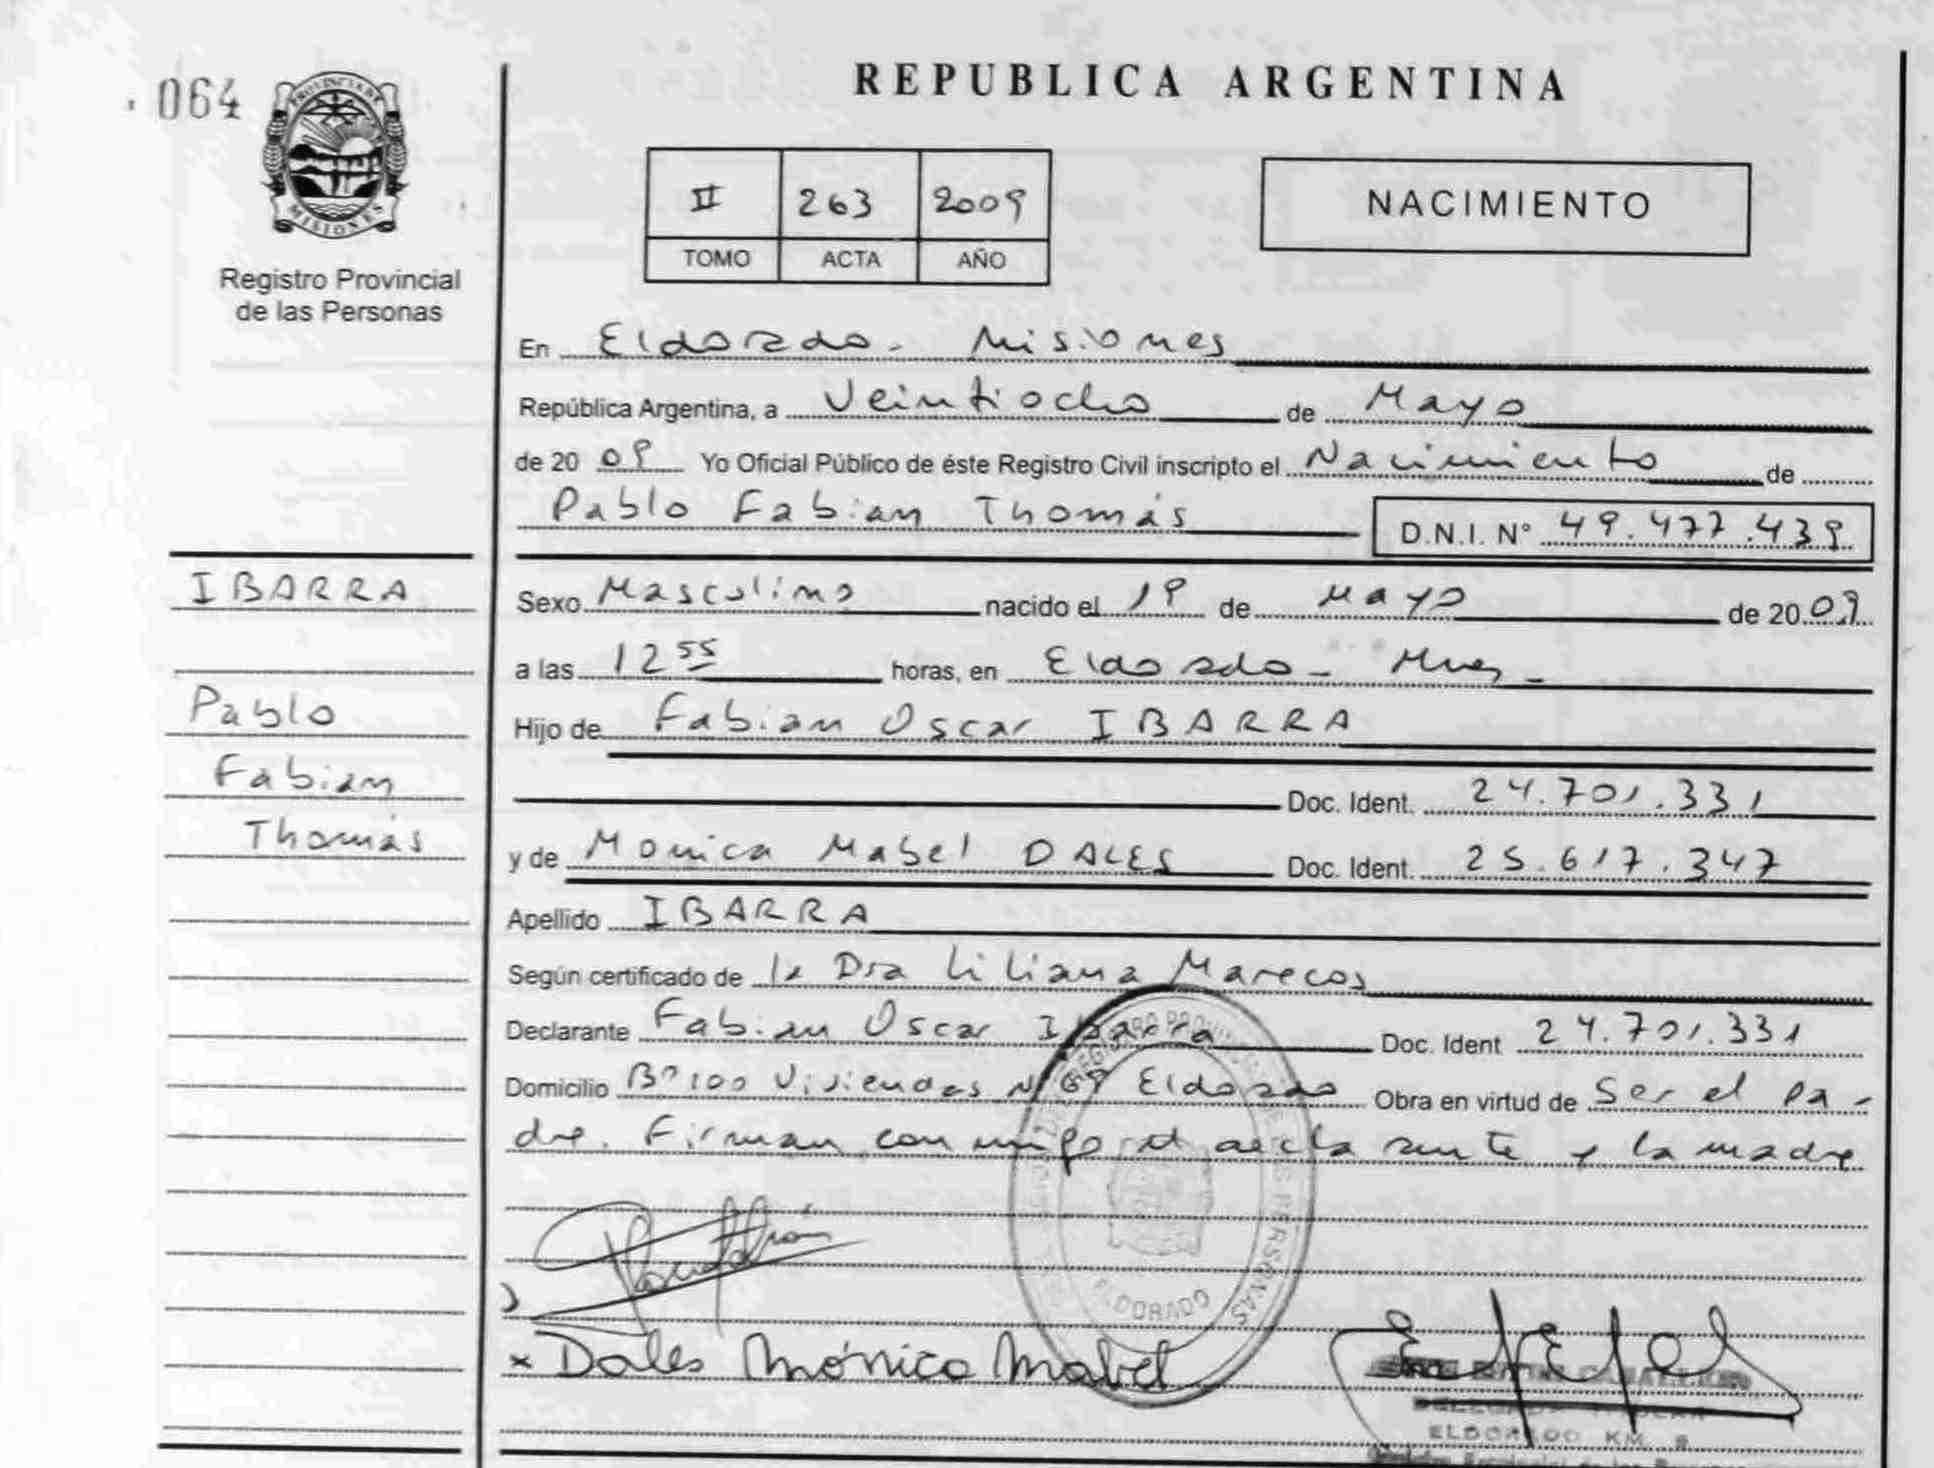 064
PROVINCIA DE
MISIONES
Registro Provincial
de las Personas
REPUBLICA ARGENTINA
II 263 2009
TOMO ACTA AÑO
NACIMIENTO
En Eldorado - Misiones
República Argentina, a Veintiocho de Mayo
de 20 09 Yo Oficial Público de éste Registro Civil inscripto el Nacimiento de
Pablo Fabian Thomás D.N.I. N° 49.477.439
IBARRA
Pablo
Fabian
Thomás
Sexo Masculino nacido el 19 de Mayo de 20 09
a las 12 55 horas, en Eldorado - Mnes -
Hijo de Fabian Oscar IBARRA
Doc. Ident. 24.701.331
y de Monica Mabel DALES Doc. Ident. 25.617.347
Apellido IBARRA
Según certificado de la Dra Liliana Marecos
Declarante Fabian Oscar Ibarra Doc. Ident 24.701.331
Domicilio Bº 100 Viviendas Nº 69 Eldorado Obra en virtud de Ser el Pa-
dre. Firman conmigo el declarante y la madre
REGISTRO PROVINCIAL DE LAS PERSONAS
ELDORADO
x Dales Mónica Mabel
DELEGADA TITULAR
ELDORADO KM. 9